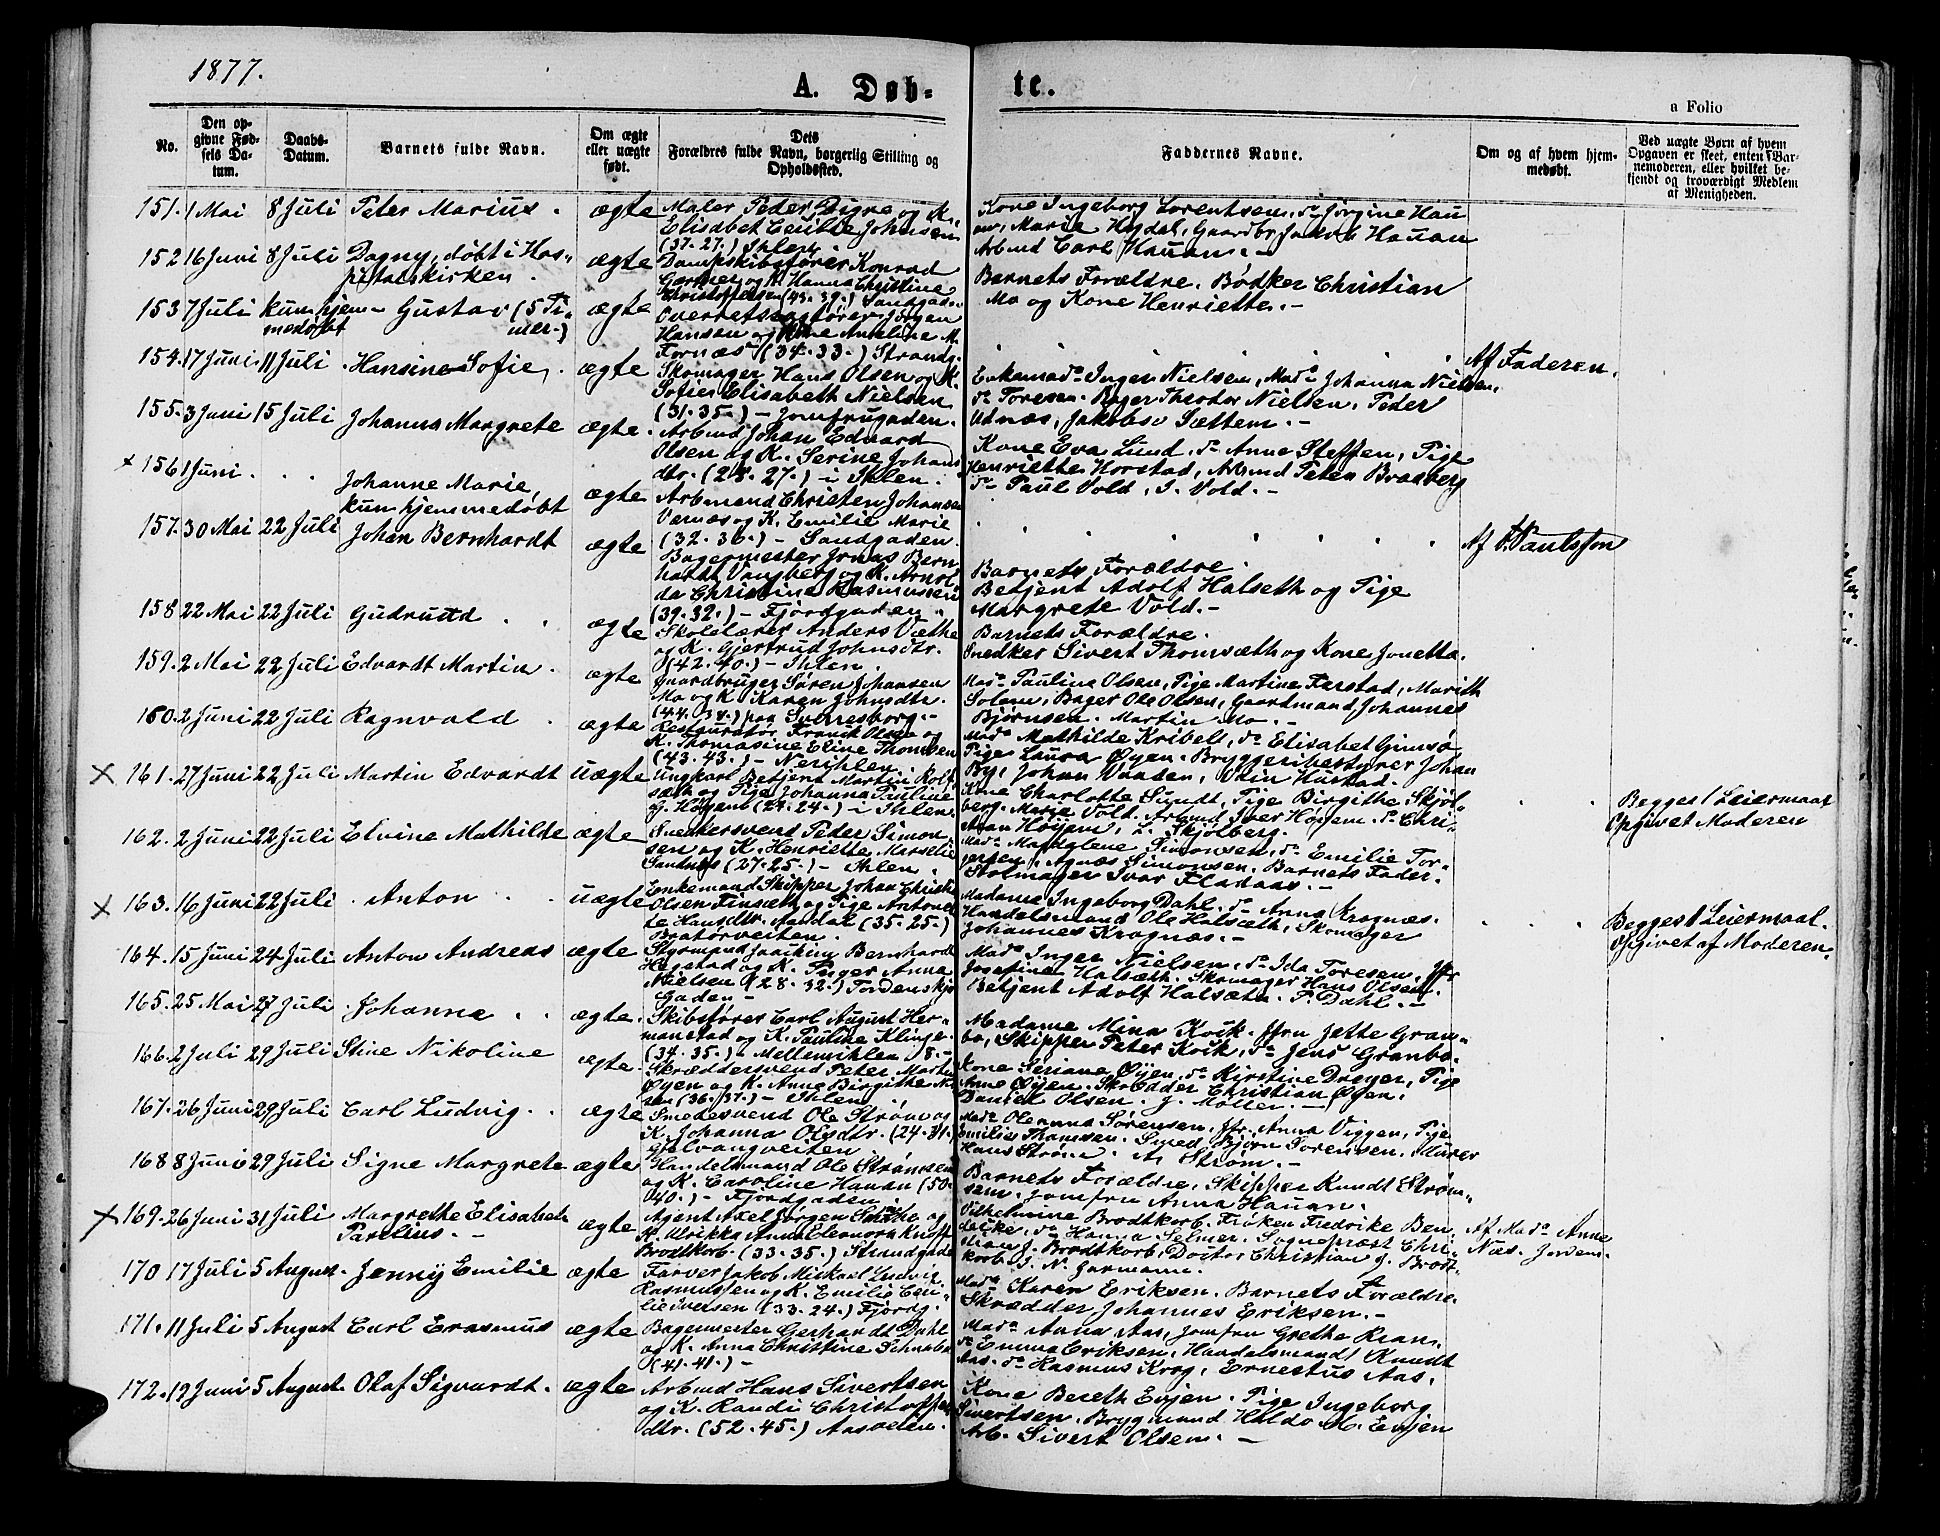 1877.
A. Døb-
te.
a Folio
No.
Den op-
givne Fød-
sels Da-
tum.
Daabs-
Datum.
Barnets fulde Navn.
Om ægte
eller uægte
født.
Dets
Forældres fulde Navn, borgerlig Stilling og
Opholdssted.
Faddernes Navne.
Om og af hvem hjem-
medøbt.
Ved uægte Børn af hvem
Opgaven er skeet, enten Bar-
nemoderen, eller hvilket be-
kjendt og troværdigt Medlem
af Menigheden.
151. 1 Mai 8 Juli Peter Marius. ægte
Maler Peder Digre og K.
Elisabet Johnsen
(37. 27.) Ihlen
Kone Ingeborg Lorentsen, do Jørgine Hau
an, Marie Gaardbr Jakob Hauan
Arbmd Carl Hauan. -
152 16 Juni 8 Juli Dagny, døbt i Hos-
pitalskirken. ægte
Dampskibsfører Konrad
og K. Hanna Christine
(43. 39.)
Barnets Forældre. Bødker Christian
Mo og Kone Henriette. -
153 7 Juli kun hjem-
medøbt Gustav (5 Ti-
mer.) ægte
Overretssagfører Jørgen
Hansen og Kone M.
Fornæs (34. 33.) Strandg.
Af Faderen.
154. 17 Juni 11 Juli Hansine Sofie, ægte
Skomager Hans Olsen og K.
Sofie Elisabeth Nielsen
(31. 35.) - Jomfrugaden.
Enkemada Inger Nielsen, Mada Johanna Nielsen,
do Toresen. Bager Theodor Nielsen. Peder
Udnæs, Jakobsv Sættem. -
155. 3 Juni 15 Juli Johanna Margrete ægte.
Arbmd Johan Edvard
Olsen og K. Serine Johans
dtr. (28. 27.) - i Ihlen.
Kone Eva Lund, do Anne Steffen, Pige
Henriette Horstad, Arbmd Peter Bradberg
do Paul Vold, I. Vold. -
x 156 1 Juni Johanne Marie,
kun hjemmedøbt ægte
Arbmand Christen Johansen
Værnæs og K. Emilie Marie
(32. 36.) - Sandgaden.
Af P. Paulsson
157. 30 Mai 22 Juli Johan Bernhardt ægte
Bagermester Jonas Bern
hardt Vangberg og K. Arnol
da Christine Rasmussen
(39. 32.) - Fjordgaden.
Barnets Forældre.
Betjent Adolf Halseth og Pige
Margrete Vold. -
158 22 Mai 22 Juli Gudrun ægte
Skolelærer Anders Væthe
og K. Gjertrud Johnsdtr.
(42. 40.) - Ihlen.
Barnets Forældre.
Snedker Sivert Thomsæth og Kone Jonetta.
159. 2 Mai 22 Juli Edvardt Martin. ægte
Gaardbruger Søren Johansen
Mo og K. Karen Johnsdtr.
(44. 34.) paa Sverresborg. -
Mada Pauline Olsen, Pige Martine Farstad, Marith
Solem, Bager Ole Olsen, Gaardmand Johannes
Bjørnsen. Martin Mo. -
160. 2 Juni 22 Juli Ragnvald ægte
Restauratør Frantz Olsen og
K. Thomasine Eline Thomsen
(43. 43.) - Nerihlen.
Mada Mathilde Kribelt, do Elisabet Gimsø
Pige Laura Øyen. Bryggeribestyrer Johan
By, Johan Vaaden, Odin Hustad.
X 161. 27 Juni 22 Juli Martin Edvardt uægte
Ungkarl Betjent Martin Rolf
sæth og Pige Johanna Pauline
G. Høyem (29. 24.) - i Ihlen.
Kone Charlotte Sundt, Pige Birgithe Skjøl-
berg. Maria Vold. Arbmd Iver Høyem. do Chri-
stian Høyem, L. Skjølberg.
Begges 1 Leiermaal
Opgivet Moderen
162. 2 Juni 22 Juli Elvine Mathilde ægte
Snedkersvend Peder Simon
sen og K. Henriette Marselie
Sandnes (27. 25.) - Ihlen.
Mada Magdalene Simonsen, do Emilie Tor-
gersen, Agnæs Simonsen. Barnets Fader.
Stolmager Ivar Fladaas. -
X 163. 16 Juni 22 Juli Anton uægte
Enkemand Skipper Johan Christ.
Olsen Finsæth og Pige Antonet
te Hansdtr. Aandal (35. 25.)
Bratørveiten.
Madame Ingeborg Dahl, do Anna Kragnæs.
Handelsmand Ole Halsæth, Skomager
Johannes Kragnæs. -
Begges 1 Leiermaal.
Opgivet af Moderen.
164. 15 Juni 24 Juli Anton Andreas ægte
Styrmand Joachim Bernhardt
Hegstad og K. Inger Anna
Nielsen (28. 32.) Tordenskjo
Gaden -
Mada Inger Nielsen, do Ida Toresen, Jfr
Josefine Halsæth. Skomager Hans Olsen.
Betjent Adolf Halsæth. P. Dahl. -
165. 25 Mai 27 Juli Johanne ægte.
Skibsfører Carl August Her-
manstad og K. Pauline Klinge-
(34. 35.) Mellemihlen 8. -
Madame Mina Kvik. Jfru Jette Gran-
bo, Skipper Peter Kvik, do Jens Granbo.
166. 2 Juli 29 Juli Stine Nikoline ægte.
Skræddersvend Peter Martin
Øyen og K. Anne Birgithe
sen (36. 37.) - Ihlen.
Kone Seriane Øyen, do Kirstine Dreyer, Pige
Anne Øyen. Skrædder Christian Øyen.
Daniel Olsen. J. Møller. -
167. 26 Juni 29 Juli Carl Ludvig. ægte
Smedesvend Ole Strøm og
K. Johanna Olsdtr. (24. 31.)
Gjelvangveiten
Mada Oleanna Sørensen, Jfr. Anna Viggen, Pige
Emilie Thomsen. Smed Bjørn Sorensen, Murer
Hans Strøm. A. Strøm. -
168 8 Juni 29 Juli Signe Margrete ægte
Handelsmand Ole Strømsem
og K. Caroline Hauan (50.
40.) - Fjordgaden.
Barnets Forældre, Skipper Knudt Strøm-
sem. Jomfru Anna Hauan.
X 169. 26 Juni 31 Juli Margrethe Elisabeth
Parelius. - ægte
Agent Axel Jørgen Smithe og
K. Ulrikka Anna Elenora Knoff
Brodtkorb. (33. 35.) Strandgade
Vilhelmine Brodtkorb. Frøken Fredrike Ben-
do Hanna Selmer. Sognepræst Chri-
stian J. Brodtkorb, Doctor Christian J. Brodt-
korb, I. N. Jermann.
Af Mada Anne
Næs. Jordem.
170 17 Juli 5 August Jenny Emilie ægte
Farver Jakob Mickael Ludvig
Rasmussen og K. Emilie Ceci-
lie Iversen (33. 24.) Fjordg.
Mada Karen Eriksen. Barnets Forældre.
Skrædder Johannes Eriksen. -
171. 11 Juli 5 August Carl Erasmus ægte
Bagermester Gerhardt Dahl
og K. Anna Christine
(41. 41.) -
Mada Anna Aas, Jomfru Grethe Kran.
do Emma Eriksen, Handelsmand Knudt
Aas. do Rasmus Krog, Ernestus Aas.
172. 19 Juni 5 August Olaf Sigvardt. ægte
Arbmd Hans Sivertsen
og K. Randi Christoffers
dtr. (52. 45.) Aasveien.
Kone Bereth Evjen. Pige Ingeborg
Sivertsen. Brygmand Haldo M. Evjen
Arb. Sivert Olsen. -